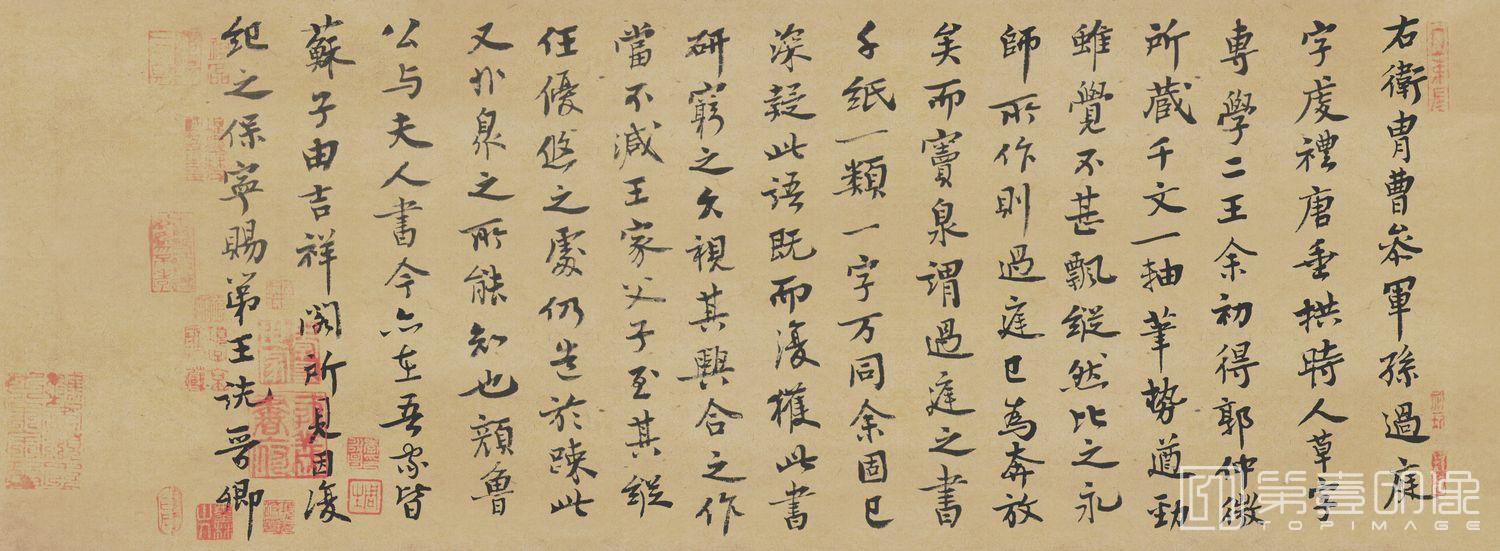 右衛胄曹參軍孫過庭
字虔禮唐垂拱時人草字
專學二王余初得郭仲微
所藏千文一軸筆勢遒勁
雖覺不甚飄縱然比之永
師所作則過庭已為奔放
矣而竇泉謂過庭之書
千紙一類一字万同余固已
深疑此語既而復獲此書
研窮之久視其興合之作
當不減王家父子至其縱
任優悠之處仍造於疎此
又非泉之所能知也顏魯
公与夫人書今亦在吾家皆
蘇子由吉祥閣所見因復
紀之保寧賜第王詵晉卿
第壹映像
TOPIMAGE